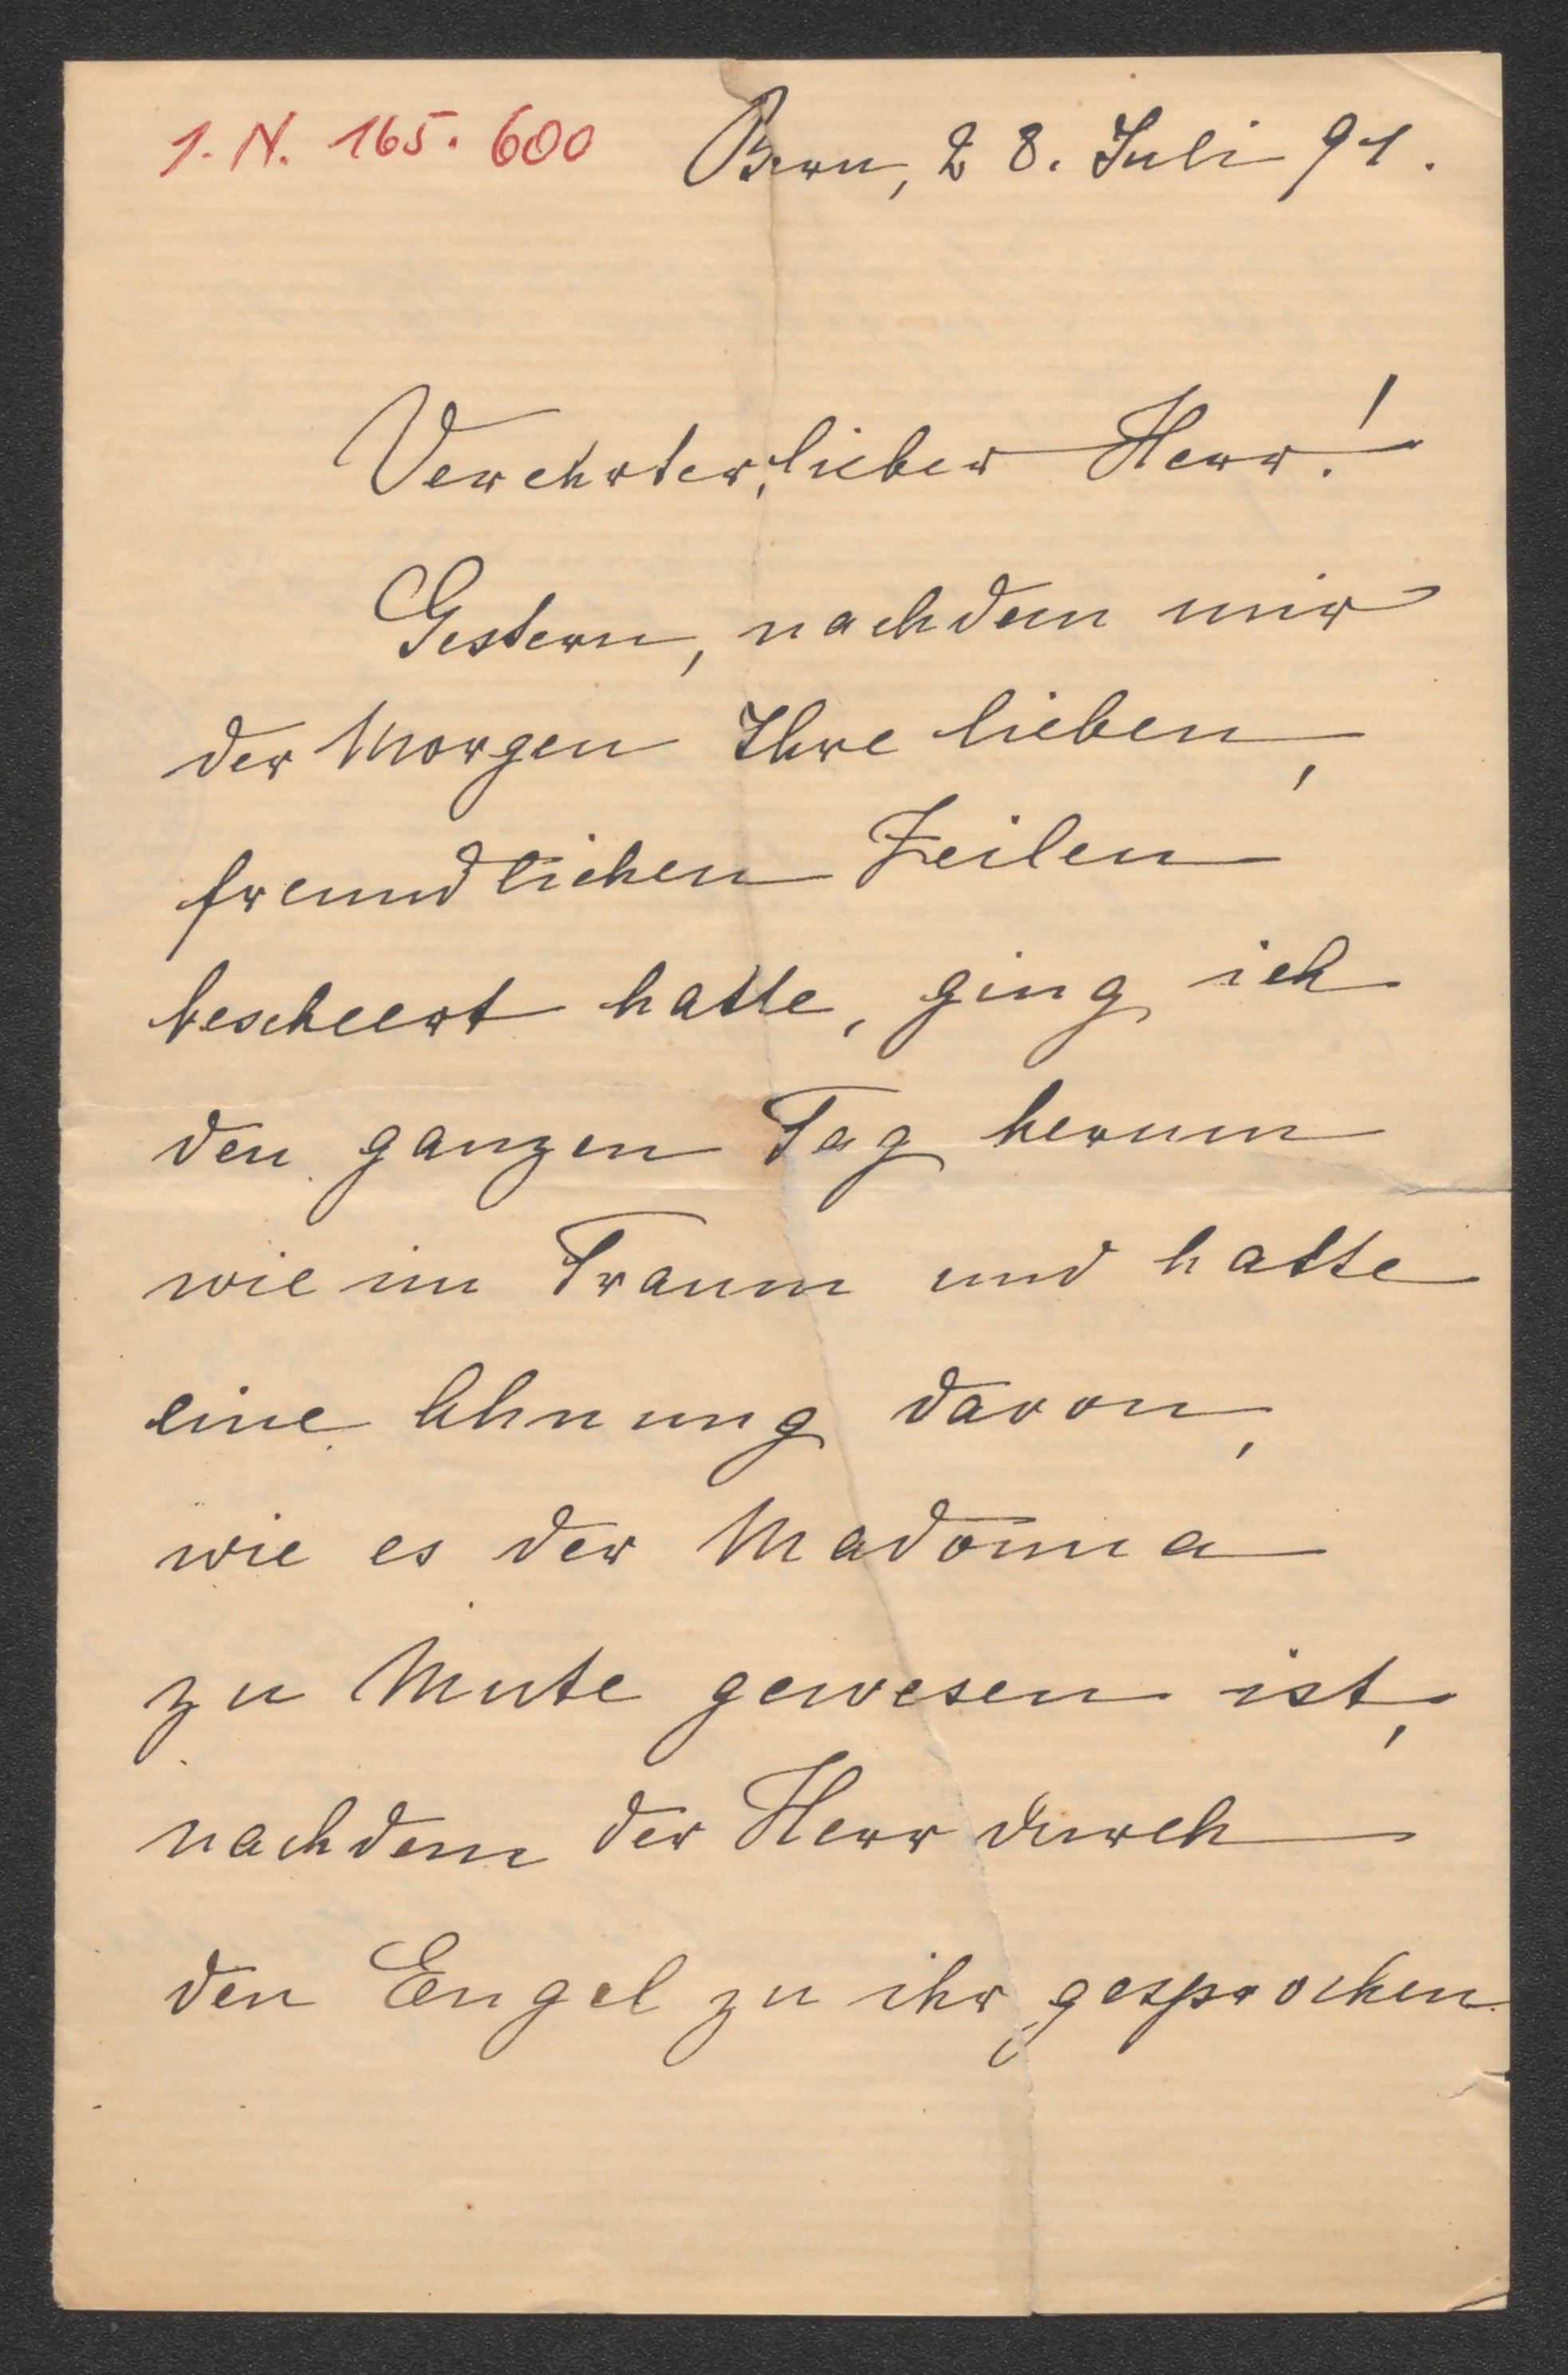 I. N. 165.600
Bern, 28. Juli 91.
Verehrter, lieber Herr!
Gestern, nachdem mir
der Morgen Ihre lieben,
freundlichen Zeilen
bescheert hatte, ging ich
den ganzen Tag herum
wie im Traum und hatte
eine Ahnung davon,
wie es der Madonna
zu Mute gewesen ist,
nachdem der Herr durch
den Engel zu ihr gesprochen